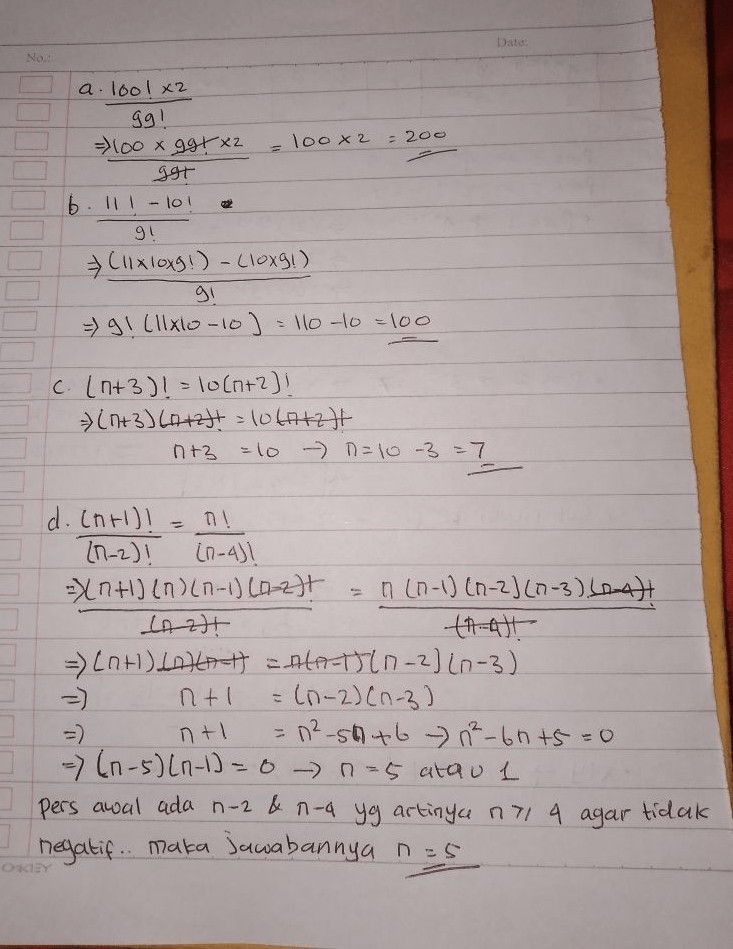 No.:
Date:
a. 100! x2
99!
⇒ 100 x 99! x2 = 100 x 2 = 200
99!
b. 11! - 10!
9!
⇒ (11x10x9!) - (10x9!)
9!
⇒ 9! (11x10 - 10) = 110 - 10 = 100
c. (n+3)! = 10(n+2)!
⇒ (n+3)(n+2)! = 10(n+2)!
n+3 = 10 → n = 10 - 3 = 7
d. (n+1)! = n!
(n-2)! (n-4)!
⇒ (n+1)(n)(n-1)(n-2)! = n (n-1)(n-2)(n-3)(n-4)!
(n-2)! (n-4)!
⇒ (n+1)(n)(n-1) = n(n-1)(n-2)(n-3)
⇒ n+1 = (n-2)(n-3)
⇒ n+1 = n²-5n+6 → n²-6n+5 = 0
⇒ (n-5)(n-1) = 0 → n = 5 atau 1
pers awal ada n-2 & n-4 yg artinya n ≥ 4 agar tidak
negatif.. maka jawabannya n = 5
OKEY